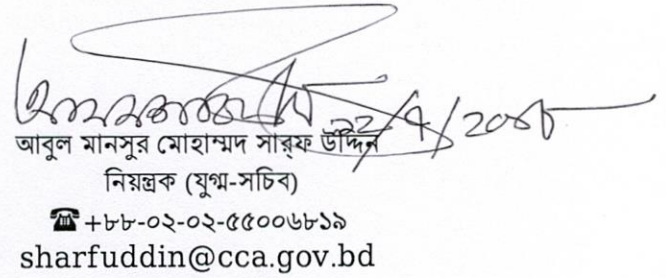 আবুল মানসুর মোহাম্মদ সার্‌ফ উদ্দিন
নিয়ন্ত্রক (যুগ্ম-সচিব)
☎+৮৮-০২-০২-৫৫০০৬৮১৯
sharfuddin@cca.gov.bd